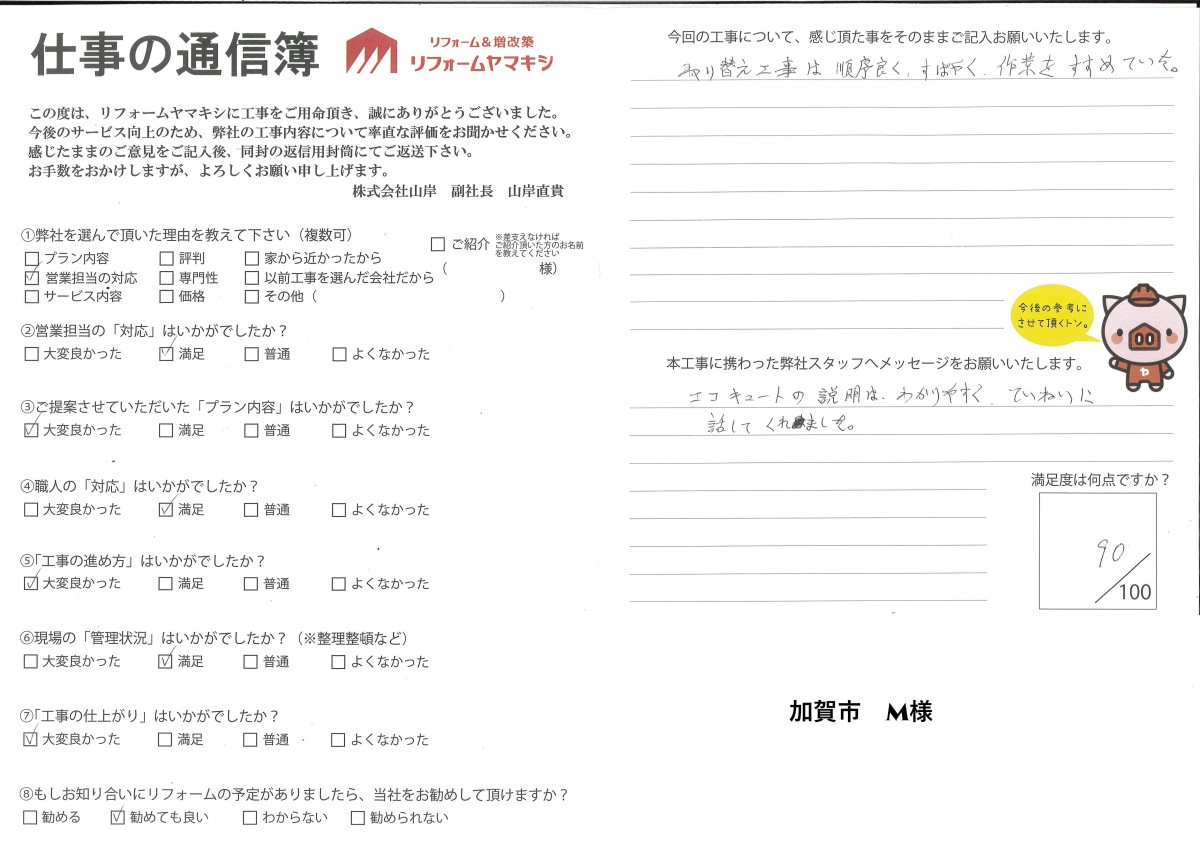 仕事の通信簿
リフォーム＆増改築
リフォームヤマキシ
この度は、リフォームヤマキシに工事をご用命頂き、誠にありがとうございました。
今後のサービス向上のため、弊社の工事内容について率直な評価をお聞かせください。
感じたままのご意見をご記入後、同封の返信用封筒にてご返送下さい。
お手数をおかけしますが、よろしくお願い申し上げます。
株式会社山岸　副社長　山岸直貴
①弊社を選んで頂いた理由を教えて下さい（複数可）
□ プラン内容　□ 評判　□ 家から近かったから
☑ 営業担当の対応　□ 専門性　□ 以前工事を選んだ会社だから
□ サービス内容　□ 価格　□ その他（　　　　　　）
□ ご紹介 ※差支えなければ
ご紹介頂いた方のお名前
を教えてください
（　　　　　　様）
②営業担当の「対応」はいかがでしたか？
□ 大変良かった　☑ 満足　□ 普通　□ よくなかった
③ご提案させていただいた「プラン内容」はいかがでしたか？
☑ 大変良かった　□ 満足　□ 普通　□ よくなかった
④職人の「対応」はいかがでしたか？
□ 大変良かった　☑ 満足　□ 普通　□ よくなかった
⑤「工事の進め方」はいかがでしたか？
☑ 大変良かった　□ 満足　□ 普通　□ よくなかった
⑥現場の「管理状況」はいかがでしたか？（※整理整頓など）
□ 大変良かった　☑ 満足　□ 普通　□ よくなかった
⑦「工事の仕上がり」はいかがでしたか？
☑ 大変良かった　□ 満足　□ 普通　□ よくなかった
⑧もしお知り合いにリフォームの予定がありましたら、当社をお勧めして頂けますか？
□ 勧める　☑ 勧めても良い　□ わからない　□ 勧められない
今回の工事について、感じ頂た事をそのままご記入お願いいたします。
取り替え工事は順序良く、すばやく、作業をすすめていた。
今後の参考に
させて頂くトン。
ヤ
本工事に携わった弊社スタッフへメッセージをお願いいたします。
エコキュートの説明は、わかりやすく、ていねいに
話してくれました。
満足度は何点ですか？
90
／100
加賀市　M様